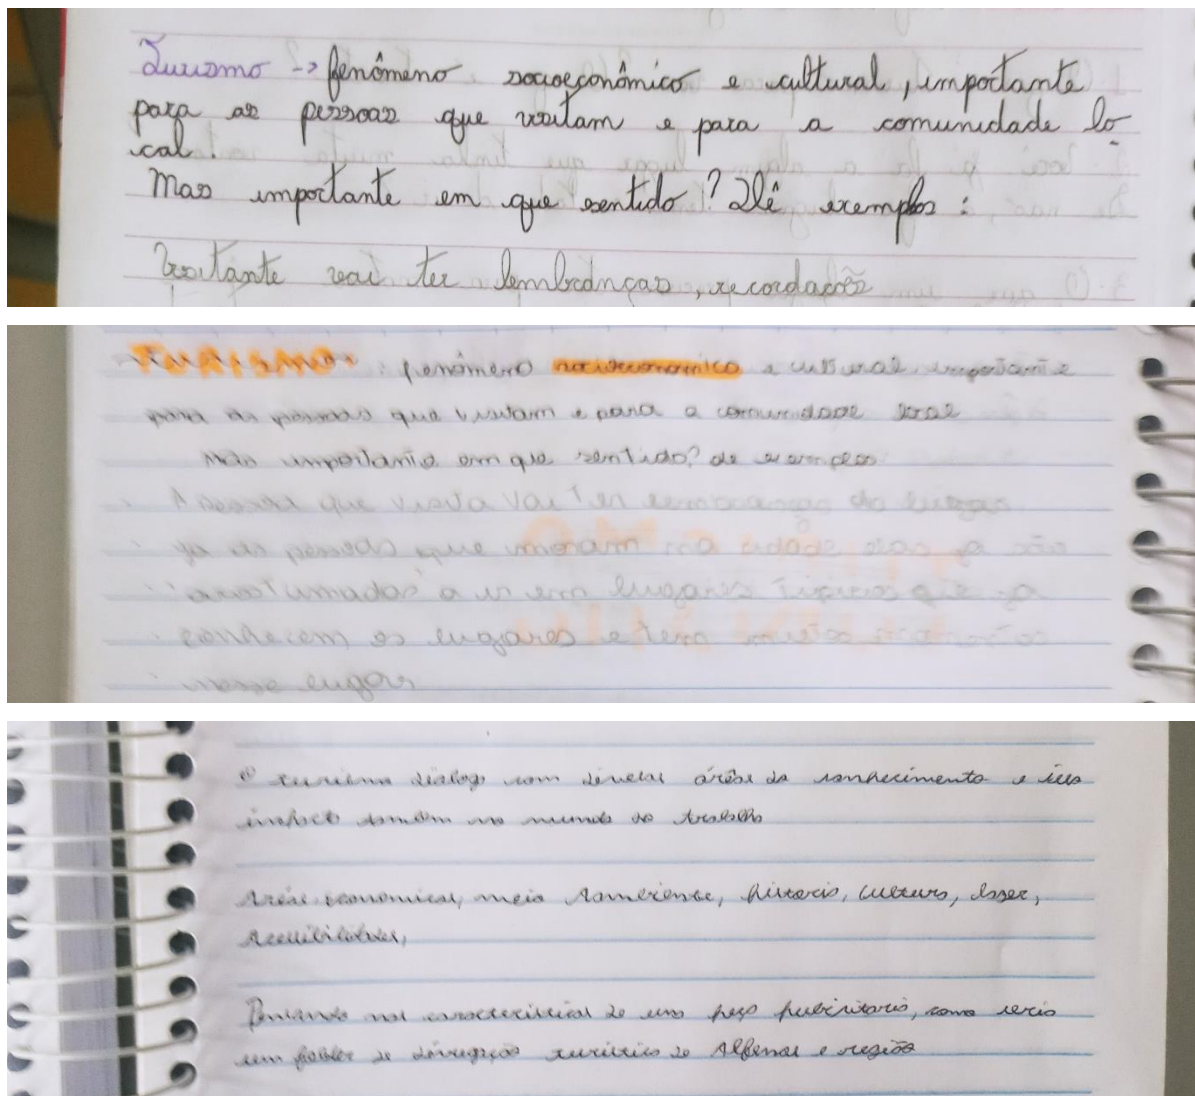 Turismo -> fenômeno socioeconômico e cultural, importante
para as pessoas que visitam e para a comunidade lo
cal.
Mas importante em que sentido? Dê exemplos:
Visitante vai ter lembranças, recordações
TURISMO: fenômeno socioeconomico e cultural importante
para as pessoas que visitam e para a comunidade local
mas importante em que sentido? de exemplos
A pessoa que visita vai ter lembranças do lugar
ja as pessoas que moram na cidade elas ja são
acostumadas a ir em lugares que ja
conhecem os lugares e tem
nesse lugar
O turismo dialoga com diversas áreas do conhecimento e seus
impacto também no mundo do trabalho
áreas economicas, meio Aambiente, historia, cultura, lazer,
Acessibilidades,
Pensando nas caracteristicas de uma peça publicitaria, como seria
um folder de divulgação turistico de Alfenas e região